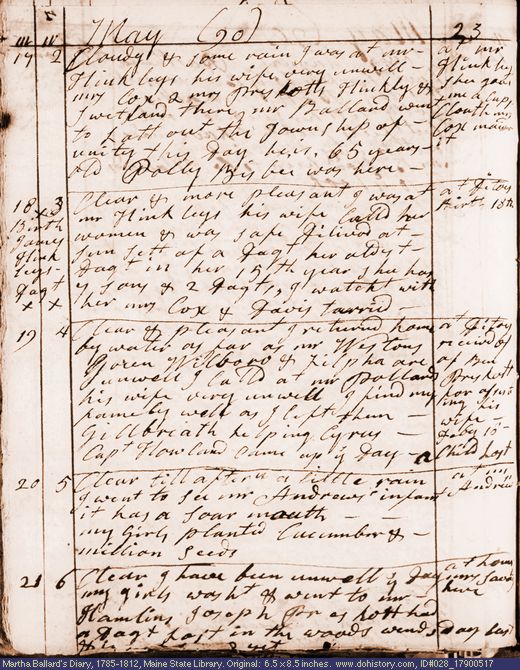 May (90)
23
17 2 Cloudy & Some rain I was at mr
Hinkleys his wife very unwell
mrs Cox & mrs Preskotts Hinkly &
there mr Ballard went
to Latt out the Township of
unity this Day he is 65 years
old Polly was here
at mr
Hinkleys
She gave
me a Cap,
Cloath mrs
Cox
it
18 3 Clear & more pleasant I was at
mr Hinkleys his wife Calld her
women & was safe Dilivd at
sun sett of a Dagt her aldest
Dagt in her 15th year She has
7 Sons & 2 Dagts, I watcht with
her mrs Cox & Davis tarried
x
Birth
James
Hink
leys
Dagt
x x
at Ditoes
Birth 18th
19 4 Clear & pleasant I returnd home
by water as far as mr Westons
Goren Wilboro & Zilpha are
unwell I Calld at mr Pollards
his wife very unwell I find my
famely well as I left them
Gillbriath helping Cyrus
Capt Howland Came up ys Day
at Ditoes
receivd
of Ben
Preskott
for assist
ing his
wife
a Child
20 5 Clear till aftern a little rain
I went to see mr Andrews infant
it has a soar mouth
my girls plantid Cucumber &
million seeds
at
Andrews
21 6 Clear I have been unwell ys Day
my girls washt & went to mr
Hamlins Joseph Preskott had
a Dagt lost in the woods
at home
mrs
here
Martha Ballard's Diary, 1785-1812, Maine State Library. Original: 6.5 x 8.5 inches. www.dohistory.com, ID#0028_17900517